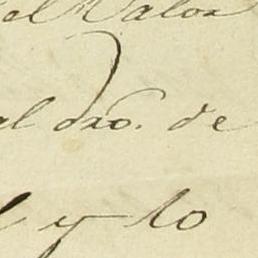 el Valor
al dro. de
l y lo